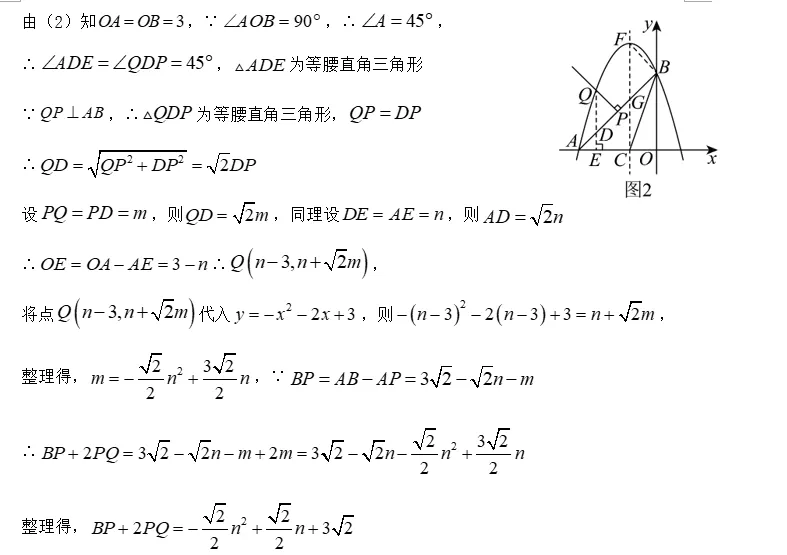 由（2）知OA=OB=3，∵ ∠AOB=90°，∴∠A=45°，
∴ ∠ADE=∠QDP=45°，△ADE为等腰直角三角形
∵QP⊥AB，∴△QDP为等腰直角三角形，QP=DP
∴QD=√(QP²+DP²)=√2DP
设PQ=PD=m，则QD=√2m，同理设DE=AE=n，则AD=√2n
∴OE=OA-AE=3-n∴Q(n-3,n+√2m)，
将点Q(n-3,n+√2m)代入y=-x²-2x+3，则-(n-3)²-2(n-3)+3=n+√2m，
整理得，m=-(√2/2)n²+(3√2/2)n，∵BP=AB-AP=3√2-√2n-m
∴BP+2PQ=3√2-√2n-m+2m=3√2-√2n-(√2/2)n²+(3√2/2)n
整理得，BP+2PQ=-(√2/2)n²+(√2/2)n+3√2
y
F
B
Q
G
P
A
D
E
C
O
x
图2